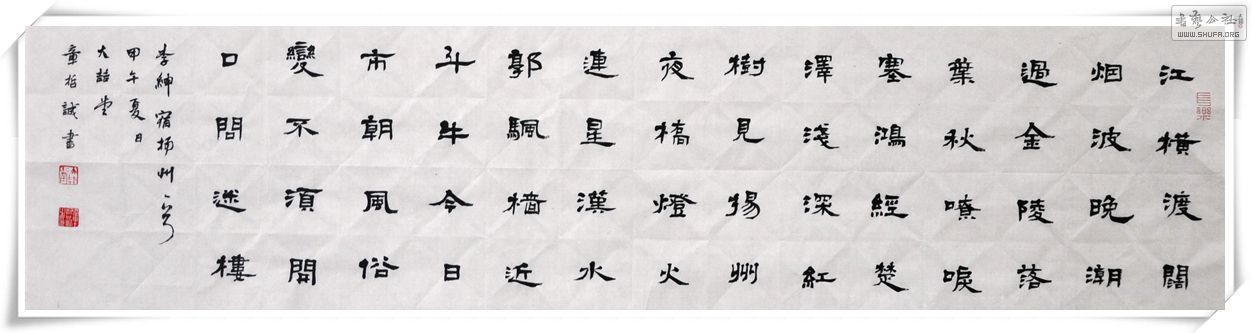 江橫渡闊
烟波晚潮
過金陵落
葉秋嘹唳
塞鴻經楚
澤淺深紅
樹見揚州
夜橋燈火
連星漢水
郭颿檣近
斗牛今日
市朝風俗
變不須開
口問迷樓
李紳宿揚州一首
甲午夏日
大喆堂
哲誠書
书艺公社
WWW.SHUFA.ORG